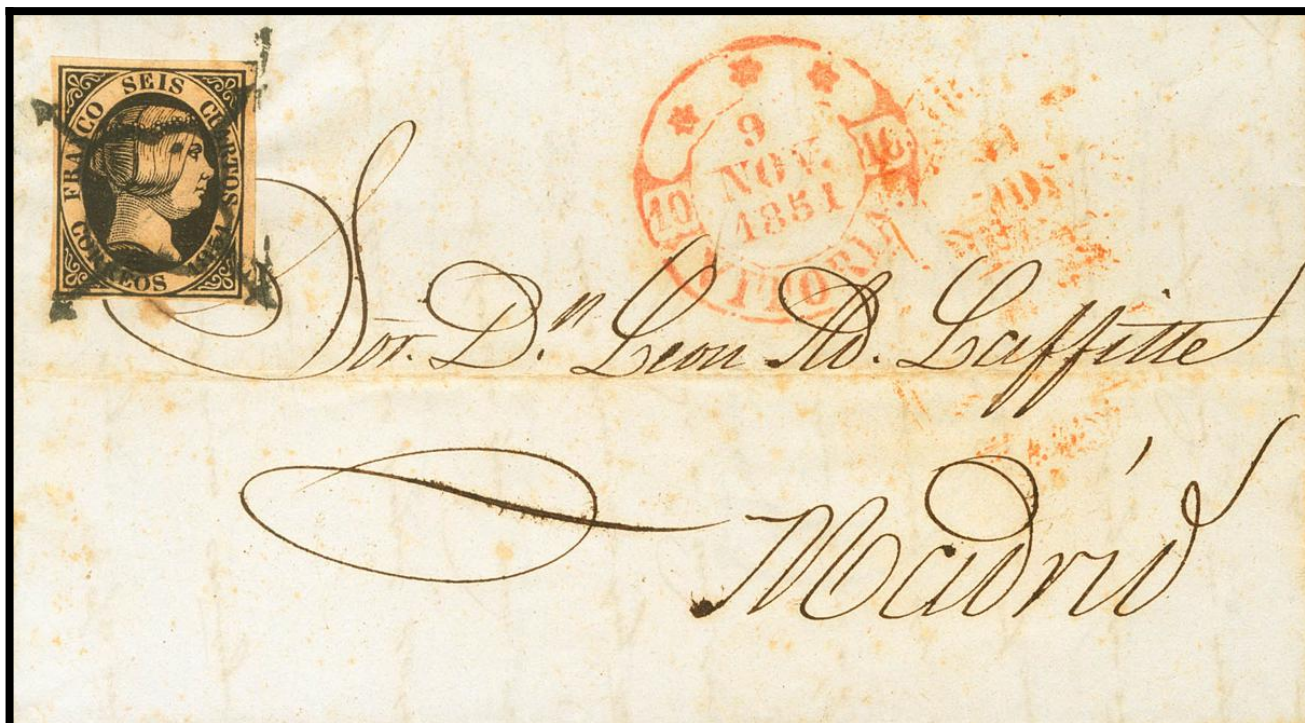 FRANCO SEIS CUARTOS
CORREOS 1851
9
NOV.
1851
10
VITORIA
Sor. D.n Leon Ad. Laffitte
Madrid